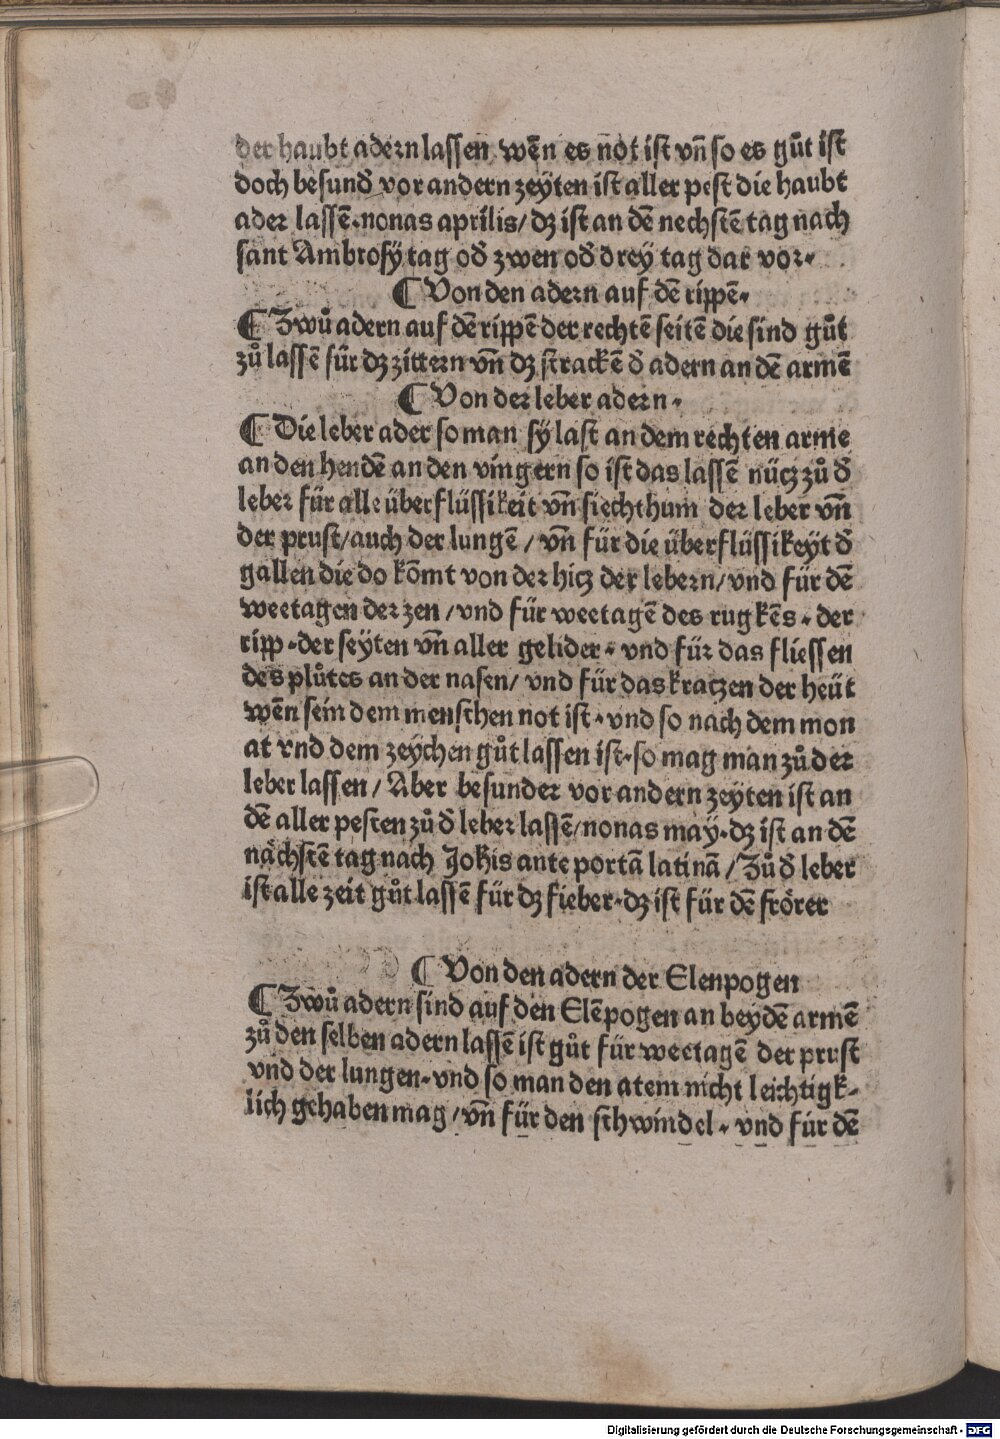 der haubt adern lassen. wẽn es not ist vñ so es gůt ist
doch besunð vor andern zeyten ist aller pest die haubt
ader lassẽ. nonas aprilis/ dʒ ist an dẽ nechstẽ tag nach
sant Ambrosÿ tag oð zwen oð drey tag dar vor.
¶ Von den adern auf dẽ rippẽ.
¶ Zwů adern auf dẽ rippẽ der rechtẽ seitẽ die sind gůt
zů lassẽ für dʒ zittern vñ dʒ strackẽ ð adern an dẽ armẽ
¶ Von der leber adern.
¶ Die leber ader so man sÿ last an dem rechten arme
an den hendẽ an den vingern so ist das lassẽ nütz zů ð
leber für alle überflüssikeit vñ siechthum der leber vñ
der prust/auch der lungẽ / vñ für die überflüssikeyt ð
gallen die do kõmt von der hitz der lebern/ vnd für dẽ
weetagen der zen /vnd für weetagẽ des rugkẽs. der
ripp. der seyten vñ aller gelider. vnd für das fliessen
des plůtes an der nasen/ vnd für das kratzen der heüt
wẽn sein dem menschen not ist. vnd so nach dem mon
at vnd dem zeychen gůt lassen ist. so mag man zů der
leber lassen / Aber besunder vor andern zeyten ist an
dẽ aller pesten zů ð leber lassẽ/nonas may. dʒ ist an dẽ
nächstẽ tag nach Johis ante portã latinã / Zů ð leber
ist alle zeit gůt lassẽ für dʒ fieber. dʒ ist für dẽ frörer
¶ Von den adern der Elenpogen
¶ Zwů adern sind auf den Elẽpogen an beydẽ armẽ
zů den selben adern lassẽ ist gůt für weetagẽ der prust
vnd der lungen. vnd so man den atem nicht leichtigk-
lich gehaben mag /vñ für den schwindel. vnd für dẽ
Digitalisierung gefördert durch die Deutsche Forschungsgemeinschaft - DFG